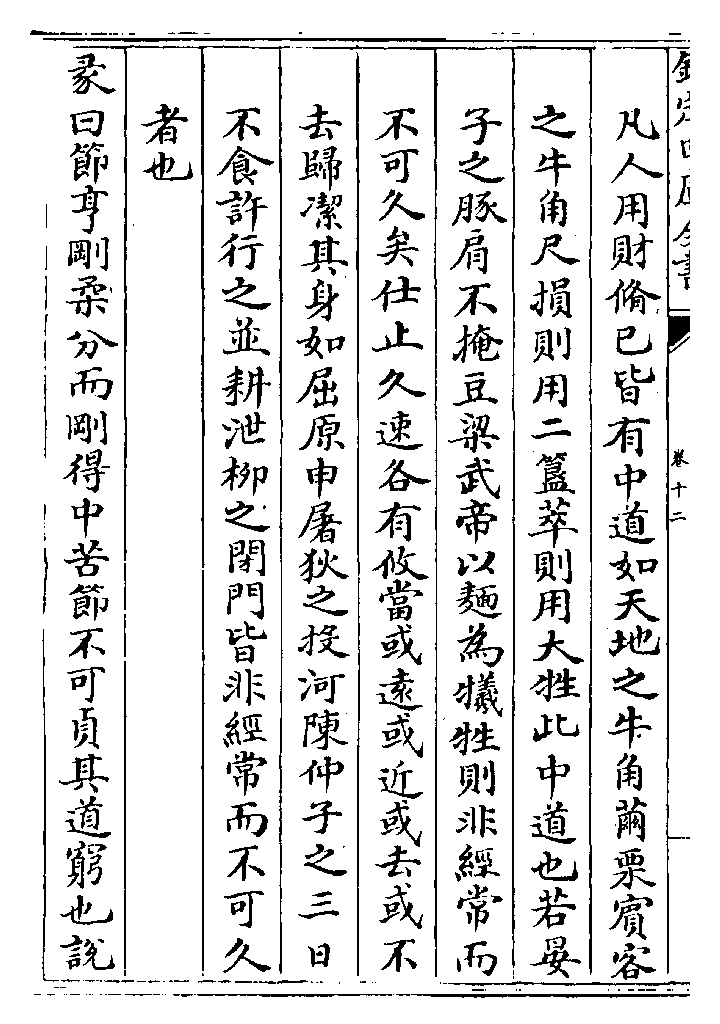 欽定四庫全書
卷十二
凡人用財脩己皆有中道如天地之牛角繭栗賓客
之牛角尺損則用二簋萃則用大牲此中道也若晏
子之豚肩不掩豆梁武帝以麵為犧牲則非經常而
不可久矣仕止久速各有攸當或遠或近或去或不
去歸潔其身如屈原申屠狄之投河陳仲子之三日
不食許行之並耕泄柳之閉門皆非經常而不可久
者也
彖曰節亨剛柔分而剛得中苦節不可貞其道窮也說